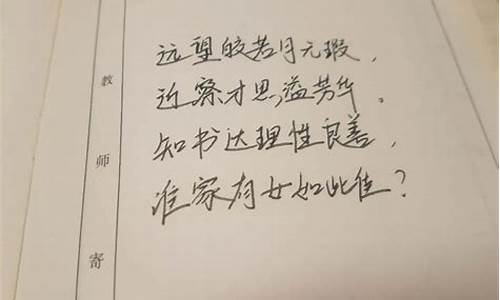 教师寄
远望皎若月无瑕，
近察才思溢芳华。
知书达理性良善，
谁家有女如此佳？